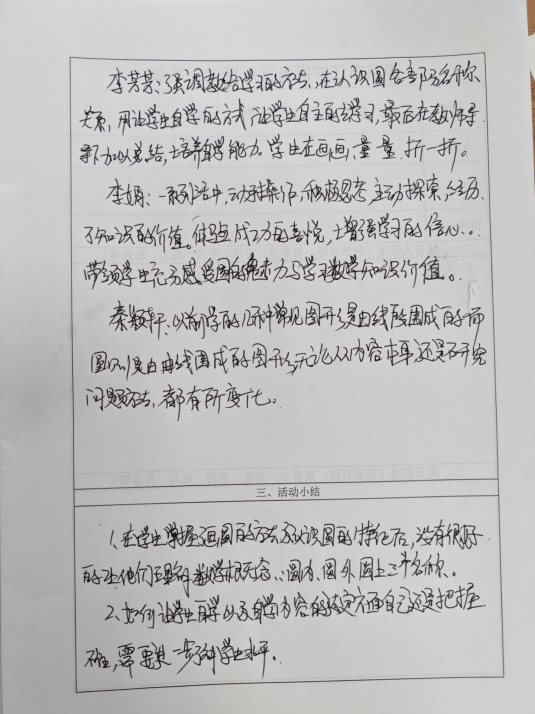 李芳芳：强调教给学习的方法，在认识圆各部分名称
关系，用让学生自学的方式，让学生自主的学习，最后在教师导
下加以总结，培养自学能力。学生在画一画，量一量，折一折。
李娟：一系列活动中，动手操作，积极思考，主动探索，经历
了知识的价值。体验成功的喜悦，增强学习的信心。
带领学生充分感受圆的魅力与学习数学知识价值。
秦颖轩：以前学的几种常见图形是由线段围成的，而
圆则是由曲线围成的图形，无论从内容本身还是研究
问题方法，都有所变化。
三、活动小结
1、在学生掌握画圆的方法及认识圆的特征后，没有很好
的让他们理解数学概念：圆内、圆外、圆上三个名称。
2、如何让学生自学以及自学内容的确定方面自己还是把握
不住，需要进一步了解学生水平。